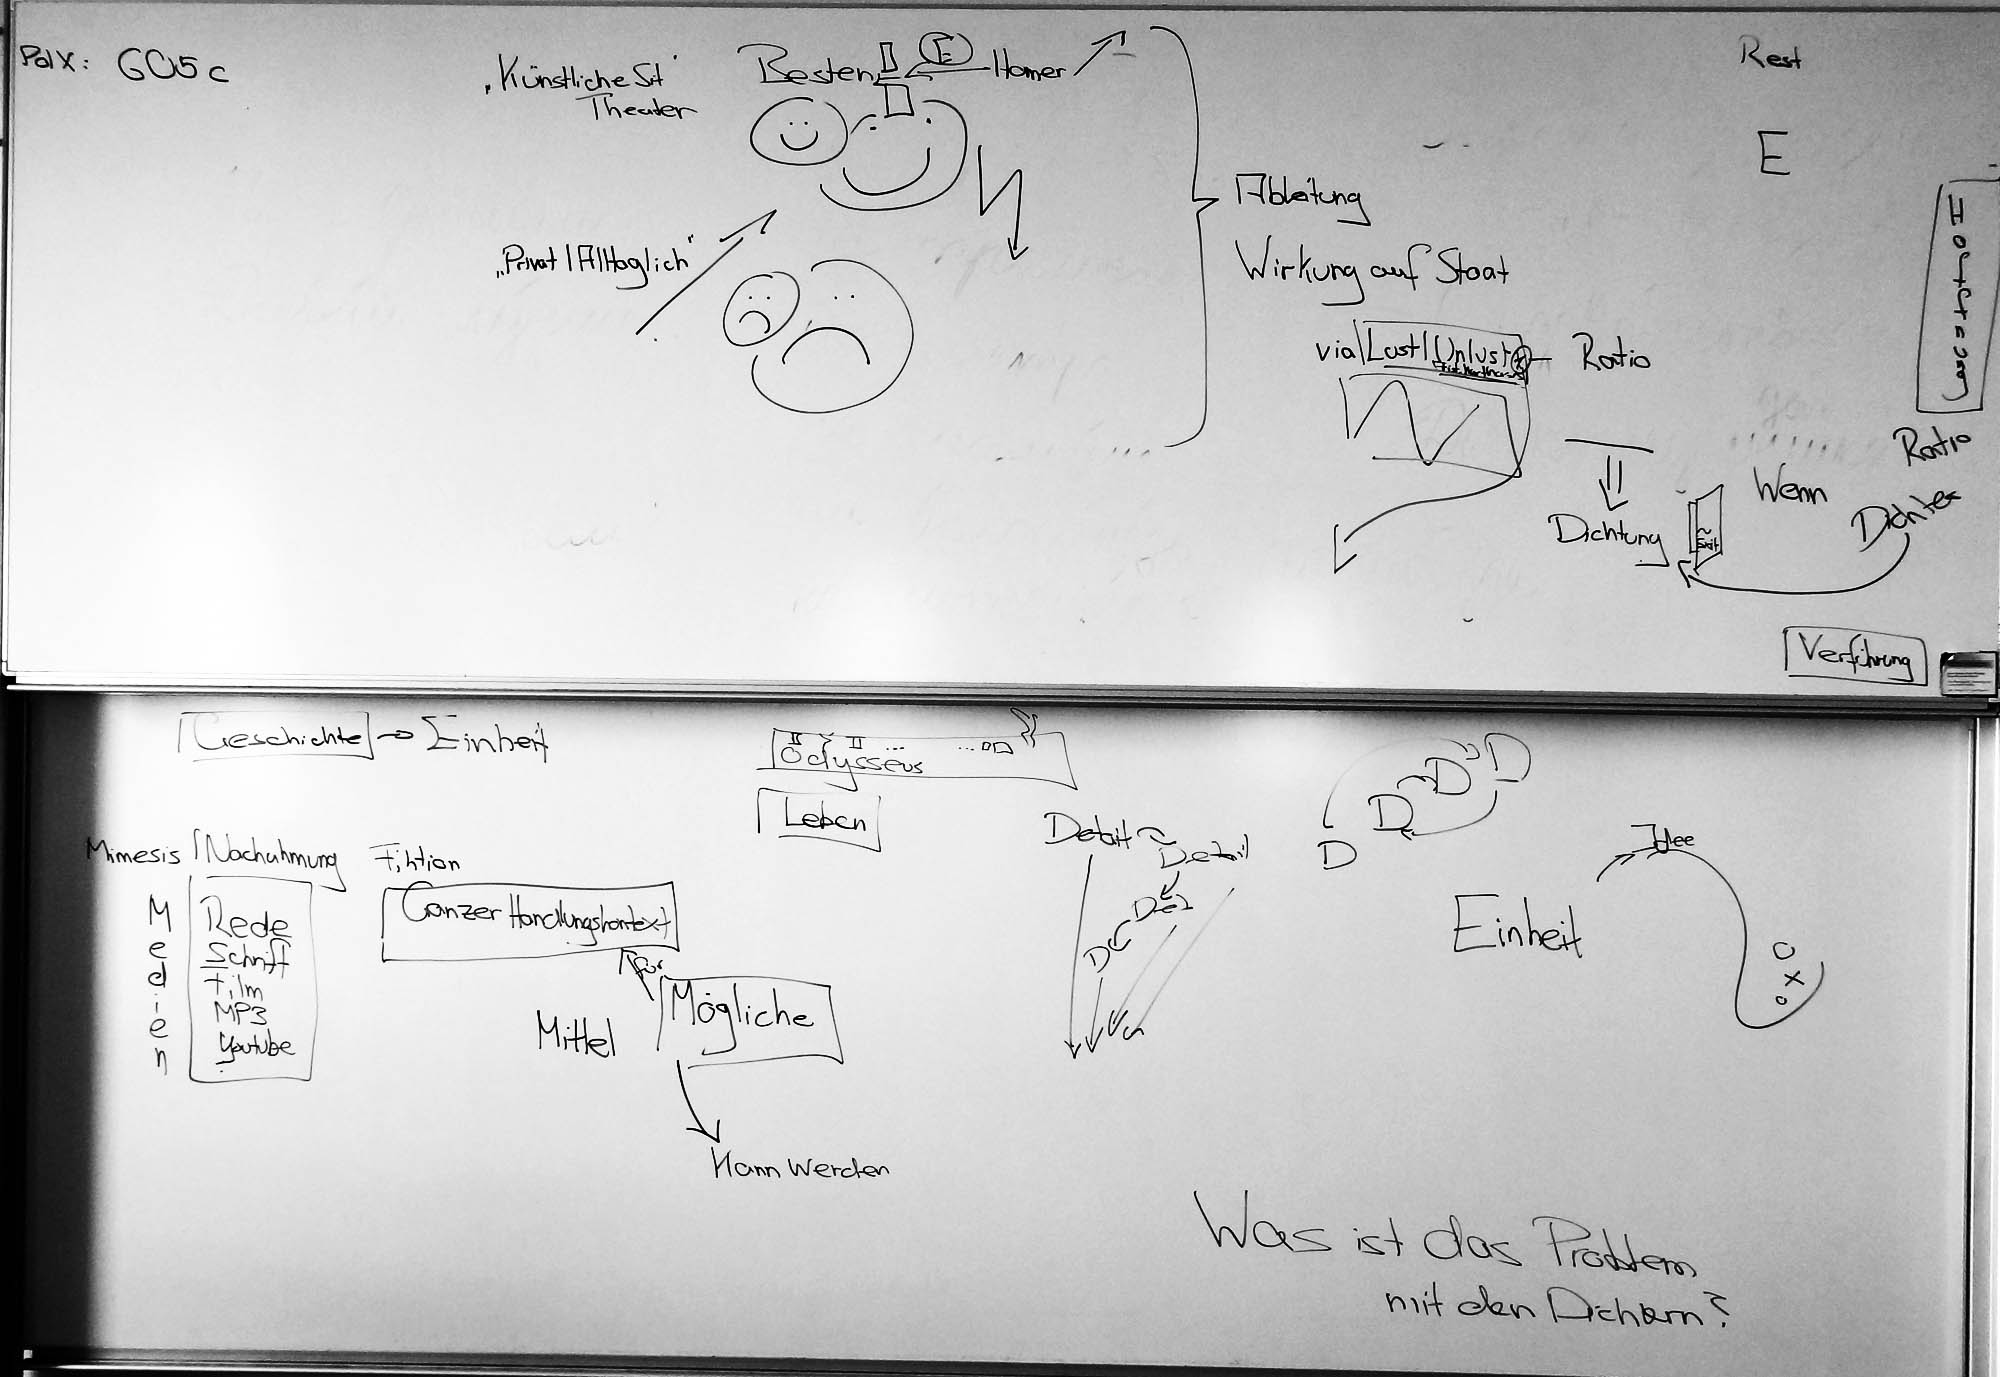 Pol X: 605c
„Künstliche Sit"
Theater
Besten
E
Homer
Rest
E
„Privat / Alltäglich"
Ableitung
Wirkung auf Staat
via Lust / Unlust
Ratio
Ratio
Wenn
Dichter
Dichtung
Verführung
Geschichte → Einheit
Odysseus
Leben
Detail
Detail
Det
D
D
D
D
D
Idee
Einheit
Mimesis / Nachahmung Fiktion
Medien
Rede
Schrift
Film
MP3
Youtube
Ganzer Handlungskontext
für
Mittel
Mögliche
Kann werden
Was ist das Problem
mit den Dichtern?